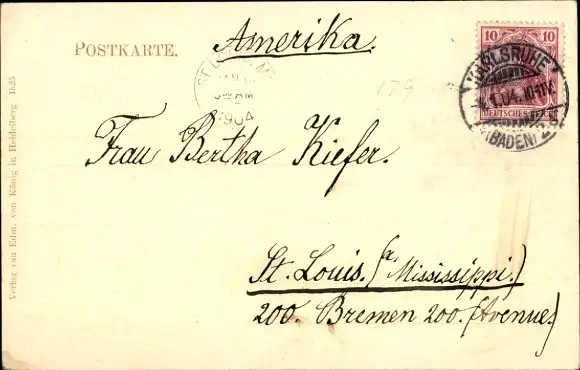 Amerika.
POSTKARTE.
10 10
DEUTSCHES REICH
KARLSRUHE
4.1.04. 10-11V.
(BADEN) 2
1904
179
Frau Bertha Kiefer.
St. Louis. (a. Mississippi.)
200. Bremen 200. (Avenue.)
Verlag von Edm. von König in Heidelberg 1525